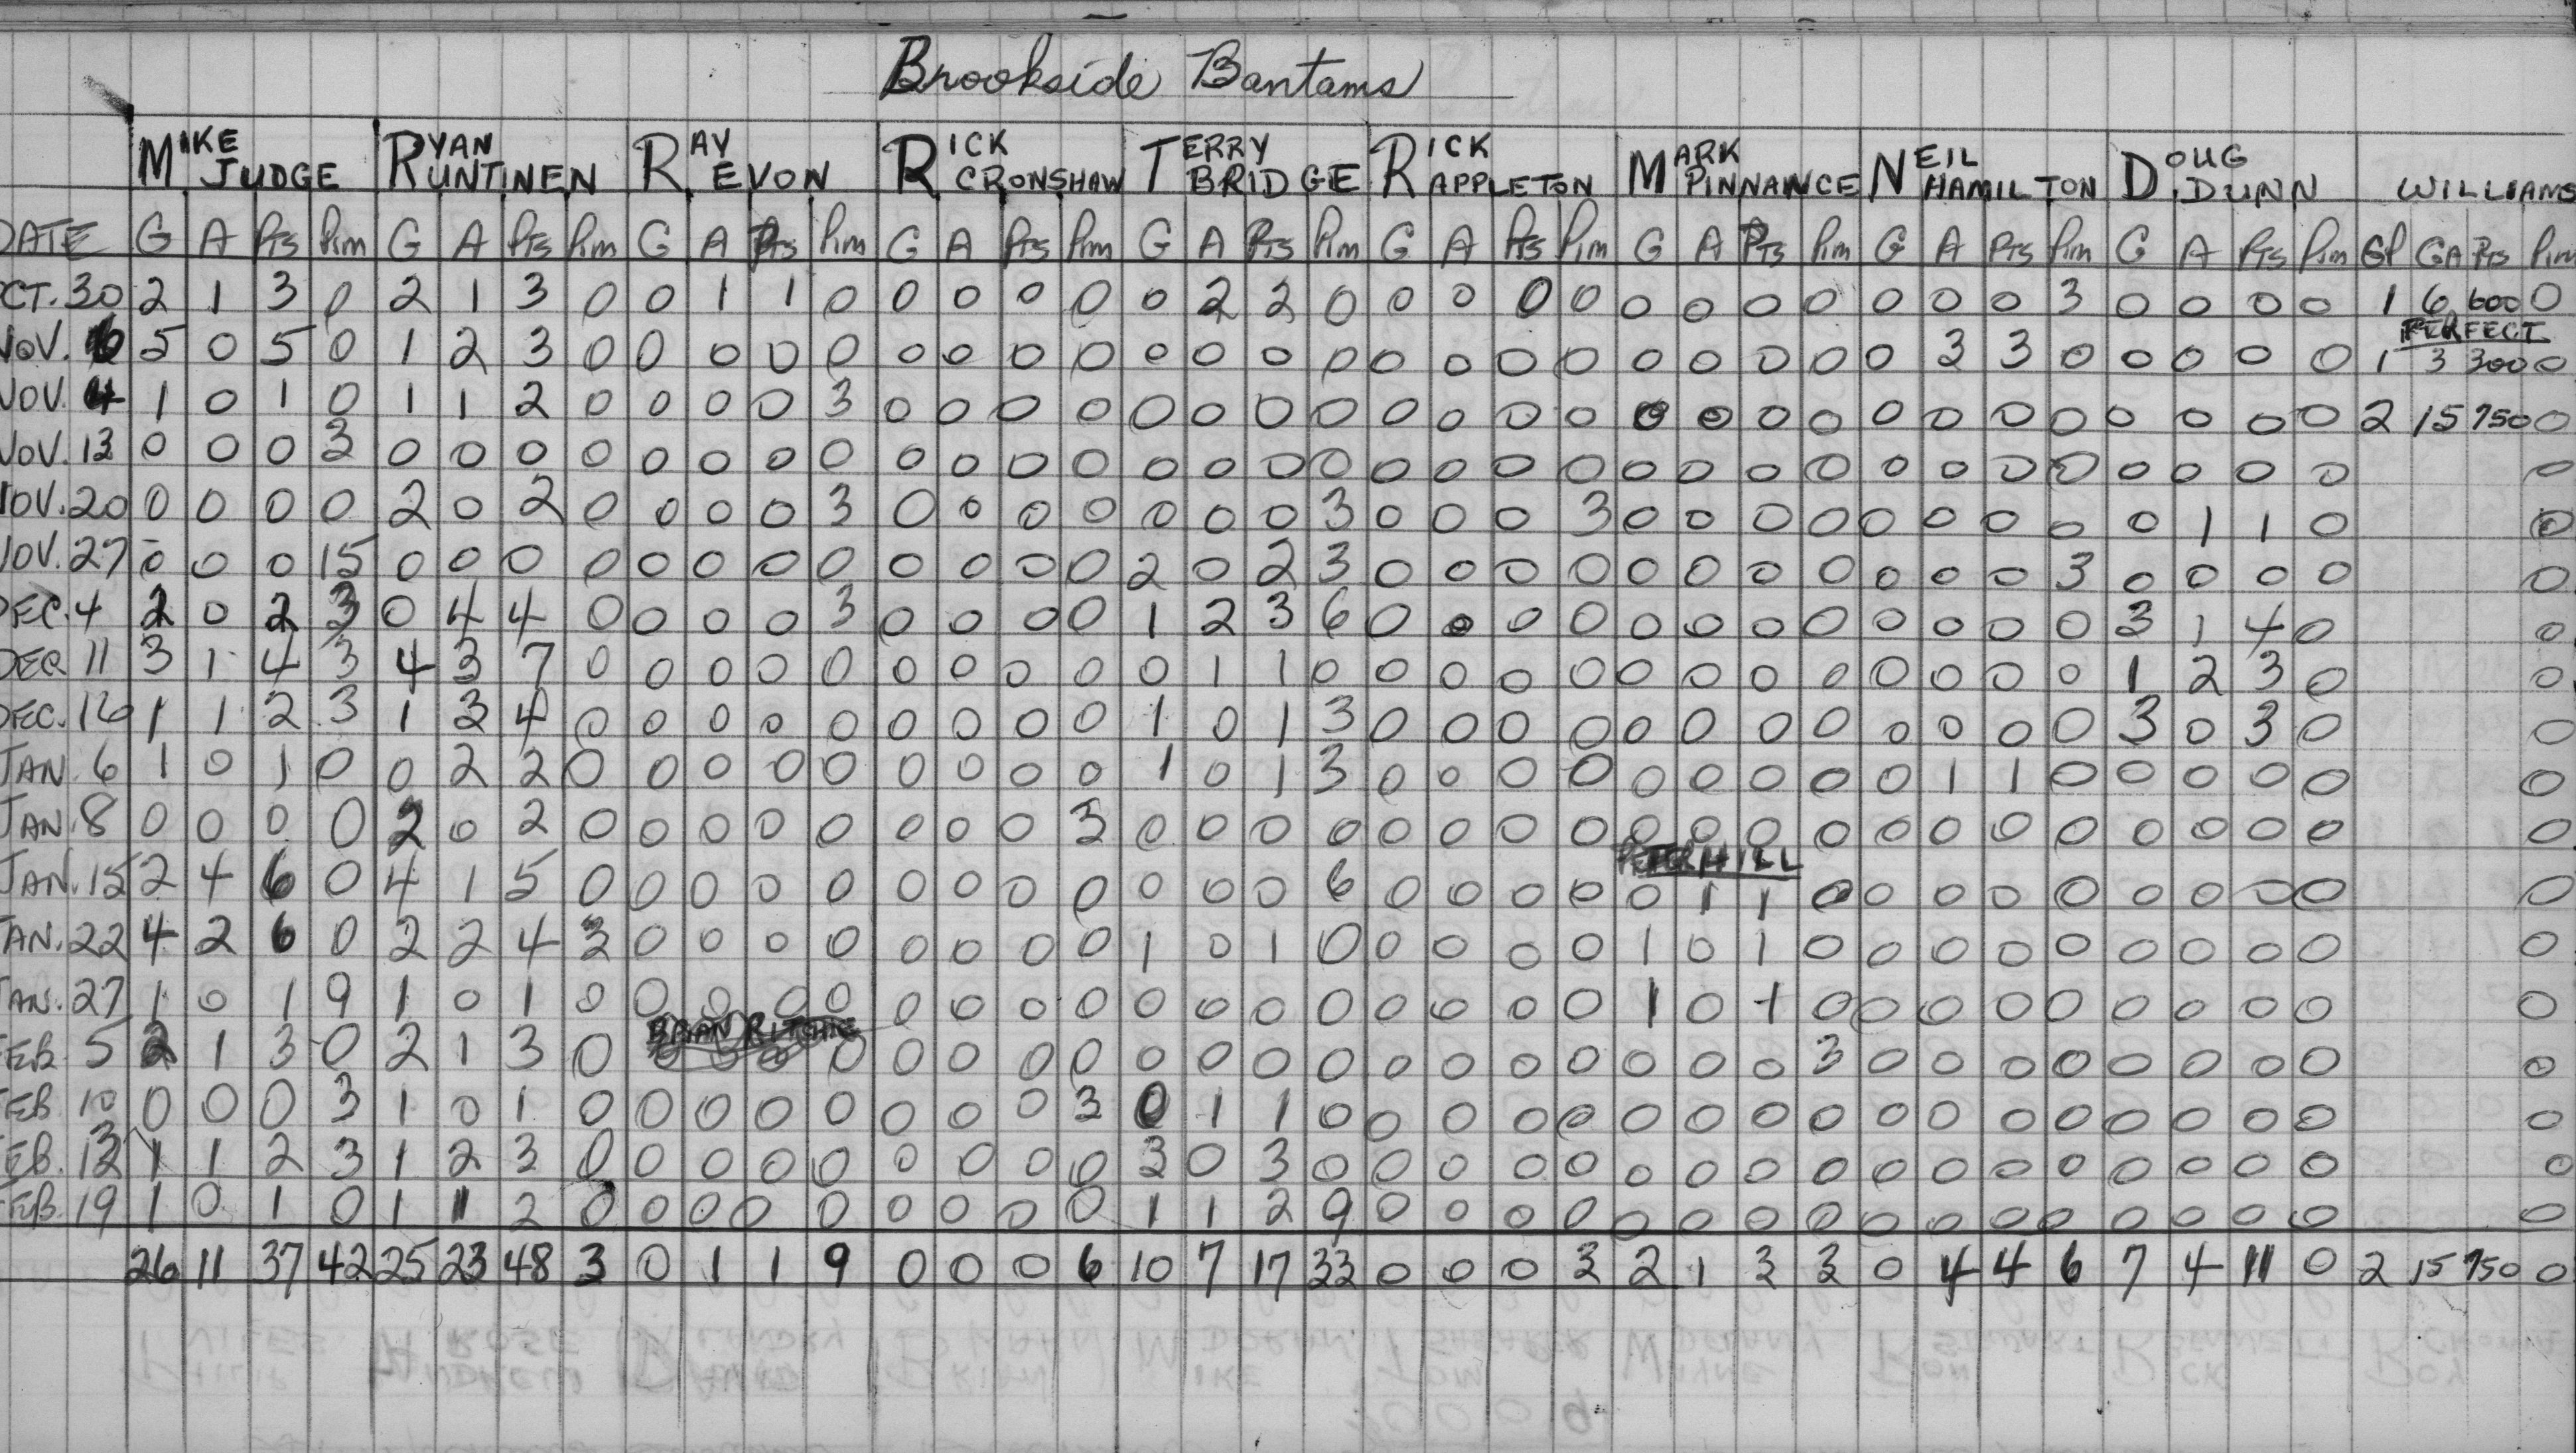 Brookside Bantams
MIKE JUDGE RYAN RUNTINEN RAY EVON RICK CRONSHAW TERRY BRIDGE RICK APPLETON MARK PINNANCE NEIL HAMILTON DOUG DUNN WILLIAMS
DATE G A Pts Pim G A Pts Pim G A Pts Pim G A Pts Pim G A Pts Pim G A Pts Pim G A Pts Pim G A Pts Pim G A Pts Pim GP GA Pts Pim
CT. 30 2 1 3 0 2 1 3 0 0 1 1 0 0 0 0 0 0 2 2 0 0 0 0 0 0 0 0 0 0 0 0 3 0 0 0 0 1 6 600 0
PERFECT
NOV. 6 5 0 5 0 1 2 3 0 0 0 0 0 0 0 0 0 0 0 0 0 0 0 0 0 0 0 0 0 0 3 3 0 0 0 0 0 1 3 300 0
NOV. 4 1 0 1 0 1 1 2 0 0 0 0 3 0 0 0 0 0 0 0 0 0 0 0 0 0 0 0 0 0 0 0 0 0 0 0 0 2 15 750 0
NOV. 13 0 0 0 3 0 0 0 0 0 0 0 0 0 0 0 0 0 0 0 0 0 0 0 0 0 0 0 0 0 0 0 0 0 0 0 0 0
NOV. 20 0 0 0 0 2 0 2 0 0 0 0 3 0 0 0 0 0 0 0 3 0 0 0 3 0 0 0 0 0 0 0 0 0 1 1 0 0
NOV. 27 0 0 0 15 0 0 0 0 0 0 0 0 0 0 0 0 2 0 2 3 0 0 0 0 0 0 0 0 0 0 0 3 0 0 0 0 0
DEC. 4 2 0 2 3 0 4 4 0 0 0 0 3 0 0 0 0 1 2 3 6 0 0 0 0 0 0 0 0 0 0 0 0 3 1 4 0 0
DEC 11 3 1 4 3 4 3 7 0 0 0 0 0 0 0 0 0 0 1 1 0 0 0 0 0 0 0 0 0 0 0 0 0 1 2 3 0 0
DEC. 16 1 1 2 3 1 3 4 0 0 0 0 0 0 0 0 0 1 0 1 3 0 0 0 0 0 0 0 0 0 0 0 0 3 0 3 0 0
JAN 6 1 0 1 0 0 2 2 0 0 0 0 0 0 0 0 0 1 0 1 3 0 0 0 0 0 0 0 0 0 1 1 0 0 0 0 0 0
JAN. 8 0 0 0 0 2 0 2 0 0 0 0 0 0 0 0 3 0 0 0 0 0 0 0 0 0 0 0 0 0 0 0 0 0 0 0 0 0
PETER HILL
JAN. 15 2 4 6 0 4 1 5 0 0 0 0 0 0 0 0 0 0 0 0 6 0 0 0 0 0 1 1 0 0 0 0 0 0 0 0 0 0
JAN. 22 4 2 6 0 2 2 4 3 0 0 0 0 0 0 0 0 1 0 1 0 0 0 0 0 1 0 1 0 0 0 0 0 0 0 0 0 0
JAN. 27 1 0 1 9 1 0 1 0 0 0 0 0 0 0 0 0 0 0 0 0 0 0 0 0 1 0 1 0 0 0 0 0 0 0 0 0 0
BRIAN RITCHIE
FEB 5 2 1 3 0 2 1 3 0 0 0 0 0 0 0 0 0 0 0 0 0 0 0 0 0 0 0 0 3 0 0 0 0 0 0 0 0 0
FEB 10 0 0 0 3 1 0 1 0 0 0 0 0 0 0 0 3 0 1 1 0 0 0 0 0 0 0 0 0 0 0 0 0 0 0 0 0 0
FEB. 13 1 1 2 3 1 2 3 0 0 0 0 0 0 0 0 0 3 0 3 0 0 0 0 0 0 0 0 0 0 0 0 0 0 0 0 0 0
FEB. 19 1 0 1 0 1 1 2 0 0 0 0 0 0 0 0 0 1 1 2 9 0 0 0 0 0 0 0 0 0 0 0 0 0 0 0 0 0
26 11 37 42 25 23 48 3 0 1 1 9 0 0 0 6 10 7 17 33 0 0 0 3 2 1 3 3 0 4 4 6 7 4 11 0 2 15 750 0